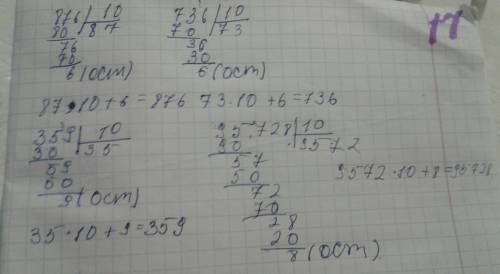 876 | 10
80 | 87
76
70
6 (ост)
736 | 10
70 | 73
36
30
6 (ост)
17
87·10+6=876 73·10+6=736
359 | 10
30 | 35
59
50
9 (ост)
35·10+9=359
95728 | 10
90 | 9572
57
50
72
70
28
20
8 (ост)
9572·10+8=95728